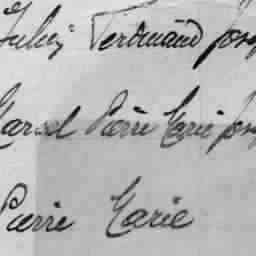 Jules Ferdinand Jos
Marcel Pierre Marie Jos
Pierre Marie